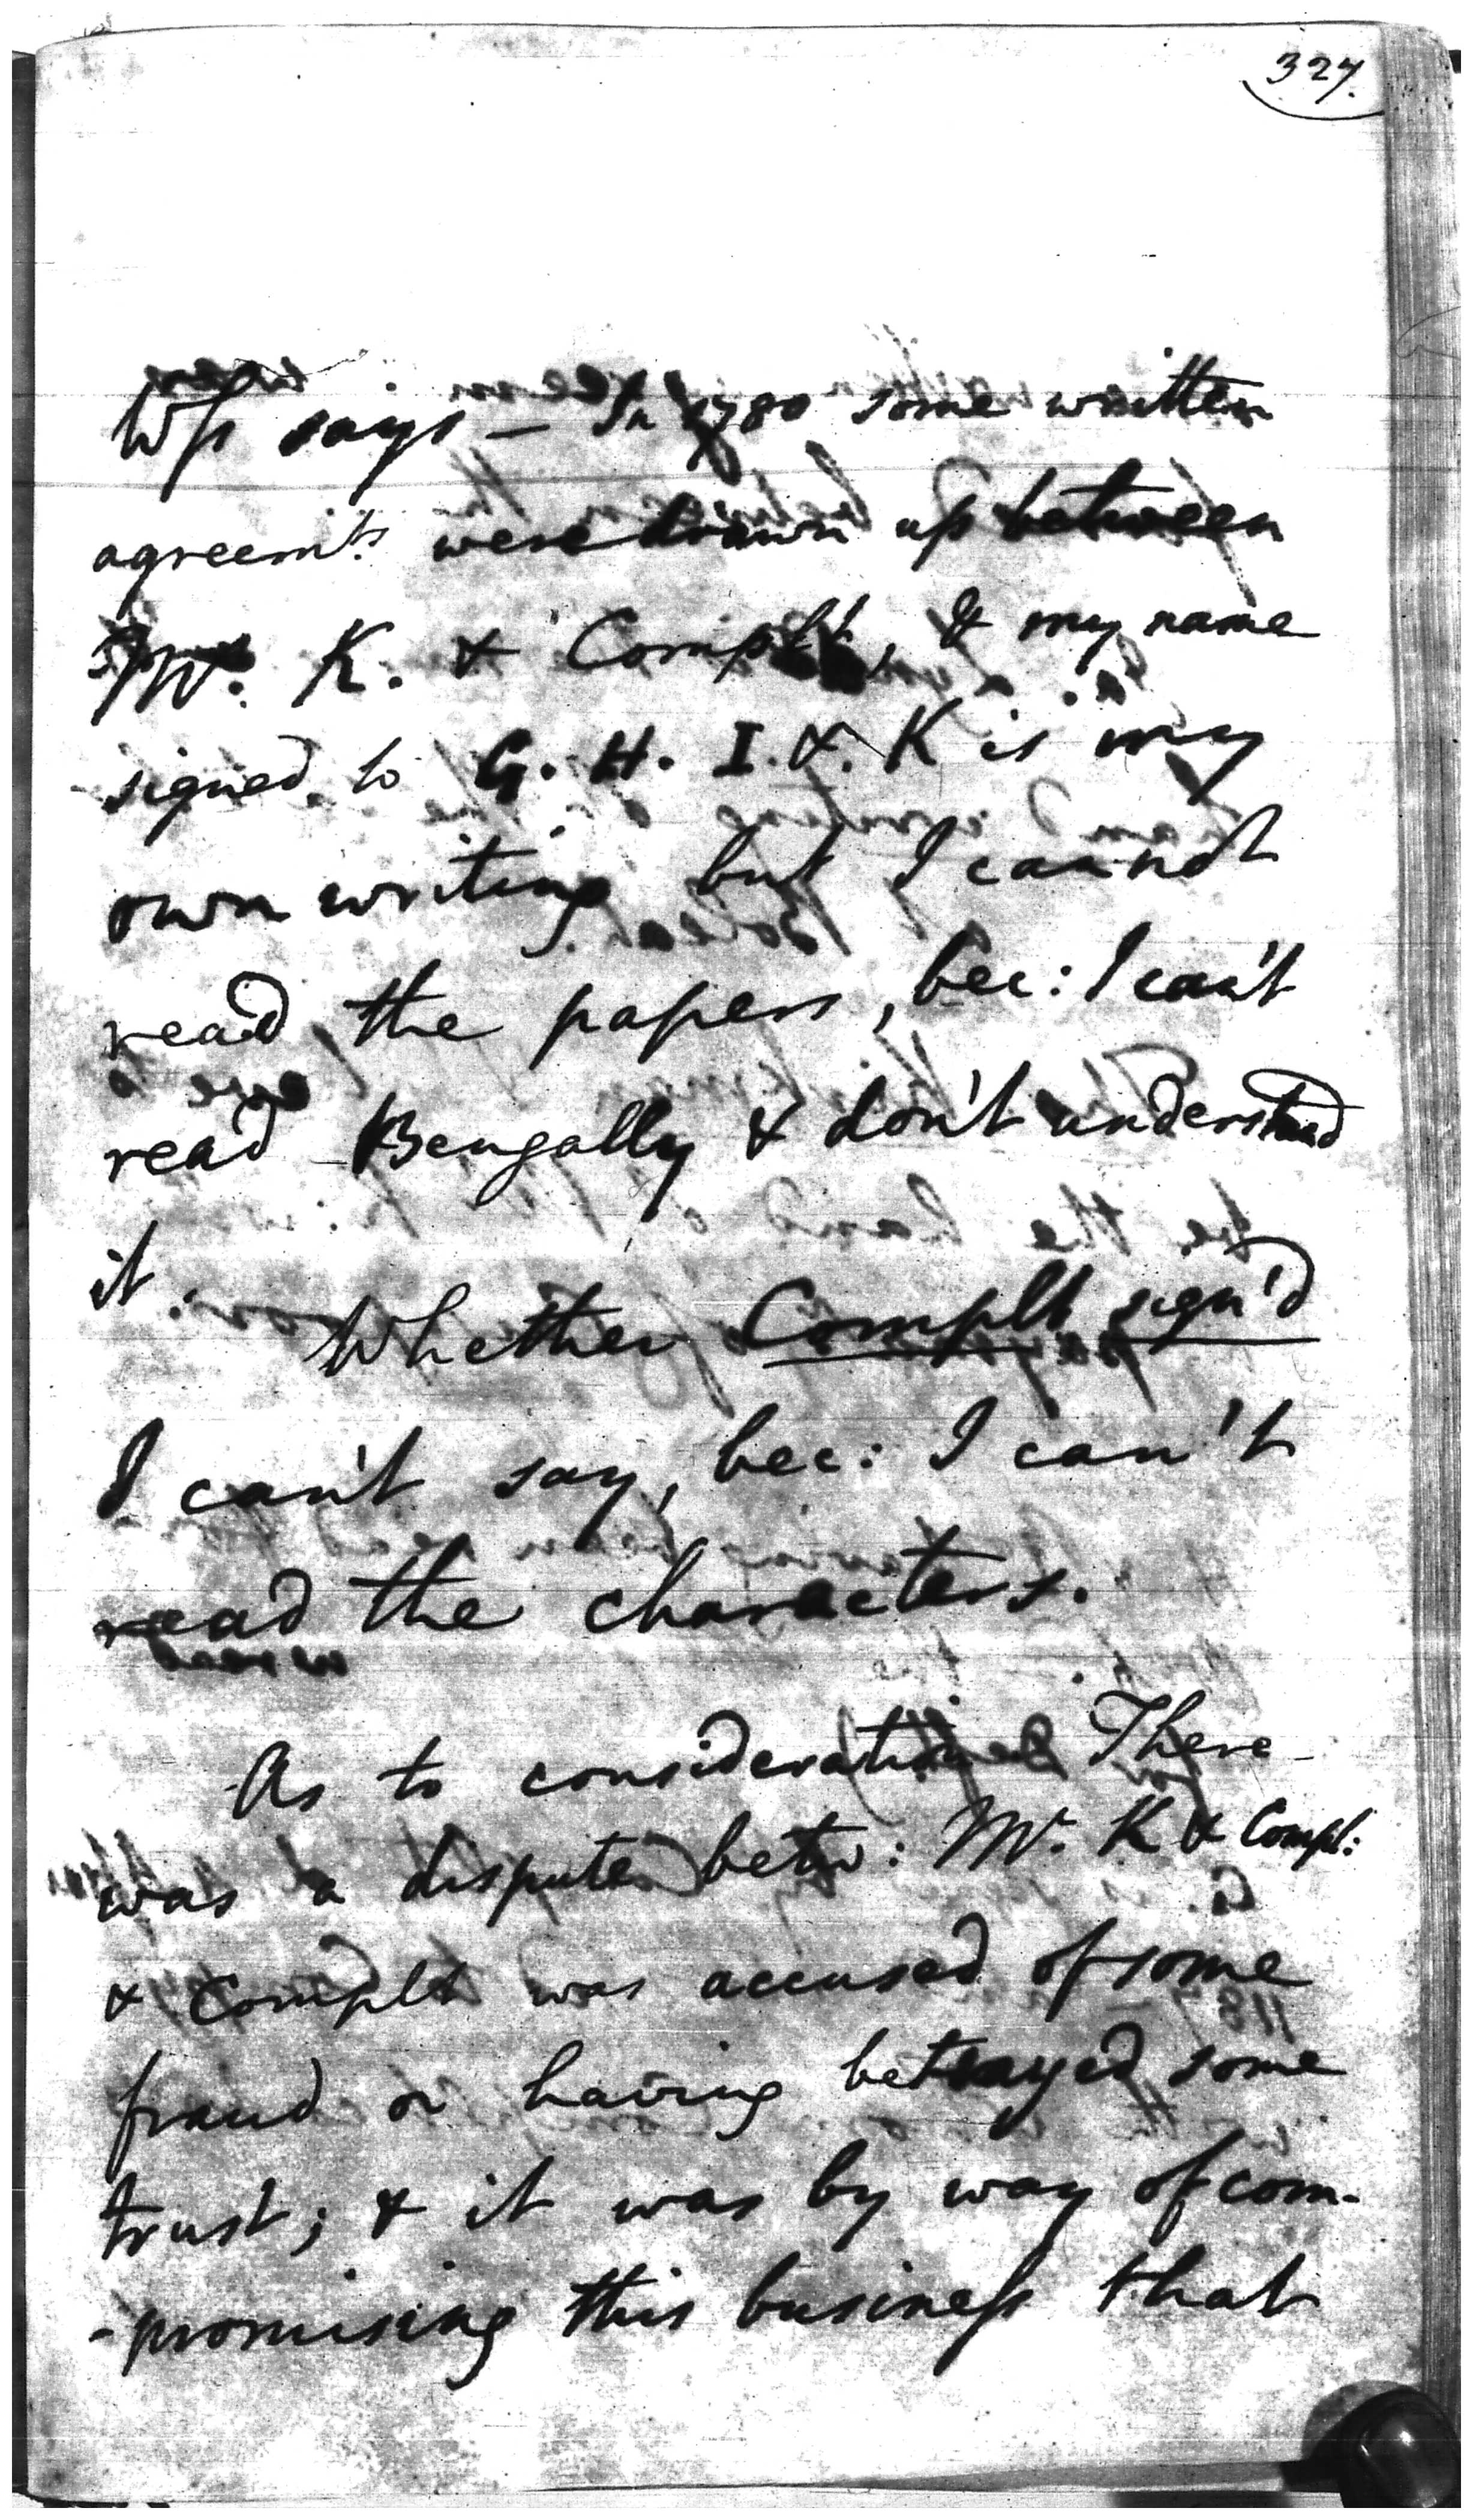 327.
Wss says — In 1780 some written
agreemts. were drawn up between
Mr. K. & Complt, & my name
signed to G. H. I. & K is my
own writing but I cannot
read the papers, bec: I can't
read Bengally & don't understand
it.
Whether Complt sign'd
I can't say, bec: I can't
read the characters.
As to consideration There
was a dispute betw: Mr. K & Compl:
& Complt was accused of some
fraud or having betrayed some
trust; & it was by way of com-
-promising this business that